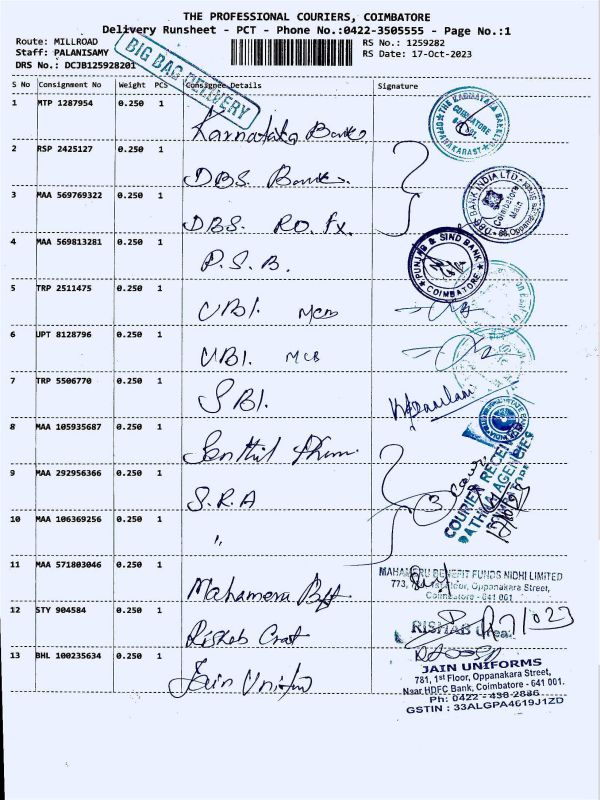 THE PROFESSIONAL COURIERS, COIMBATORE
Delivery Runsheet - PCT - Phone No.:0422-3505555 - Page No.:1
Route: MILLROAD
RS No.: 1259282
Staff: PALANISAMY
RS Date: 17-Oct-2023
DRS No.: DCJB125928201
BIG BAG DELIVERY
S No Consignment No Weight PCS Consignee Details Signature
1 MTP 1287954 0.250 1 Karnataka Bank
2 RSP 2425127 0.250 1 DBS. Bank.
3 MAA 569769322 0.250 1 DBS. RO. Fx.
4 MAA 569813281 0.250 1 P.S.B.
PUNJAB & SIND BANK
COIMBATORE
5 TRP 2511475 0.250 1 UBI. MCB
6 UPT 8128796 0.250 1 UBI. MCB
7 TRP 5506770 0.250 1 SBI.
8 MAA 105935687 0.250 1 Senthil
9 MAA 292956366 0.250 1 S.R.A
COURIER RECEIVED
10 MAA 106369256 0.250 1 "
11 MAA 571803046 0.250 1 Mahameru
MAHAMERU BENEFIT FUNDS NIDHI LIMITED
Oppanakara Street,
Coimbatore - 641 001
12 STY 904584 0.250 1 Rishab
RISHAB
13 BHL 100235634 0.250 1 Jain Uniform
JAIN UNIFORMS
781, 1st Floor, Oppanakara Street,
Near HDFC Bank, Coimbatore - 641 001.
Ph: 0422 - 438 2886
GSTIN : 33ALGPA4619J1ZD